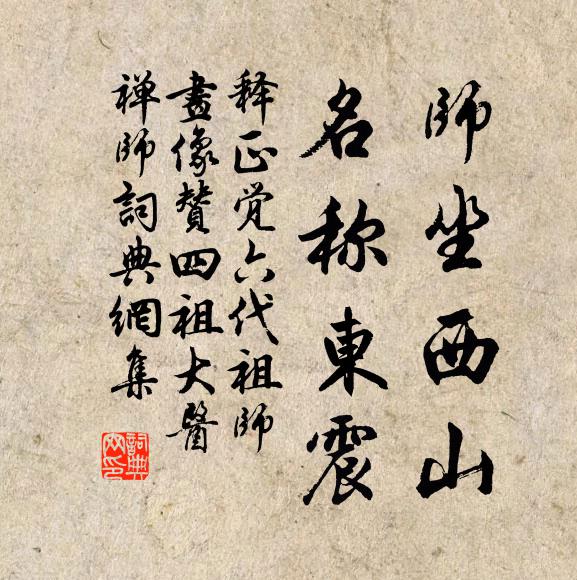 師坐西山
名称東震
释正觉六代祖師
畫像贊四祖大醫
禅師詞典網集
詞典
网印